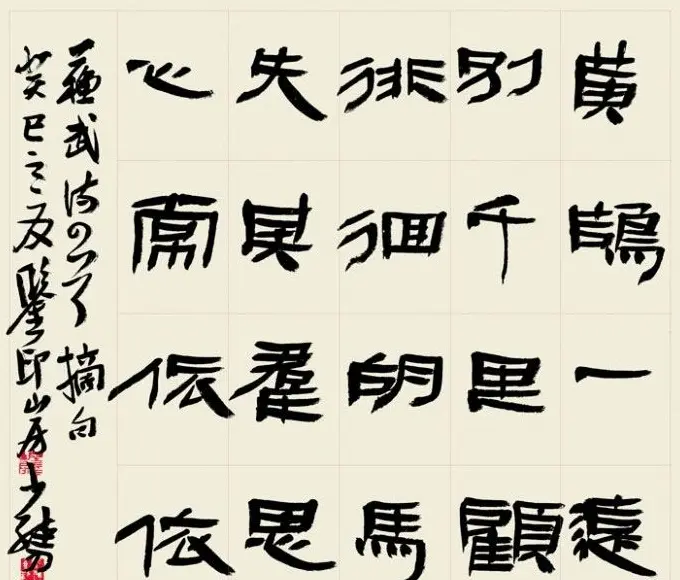 黄鵠一遠
别千里顧
徘徊胡馬
失其羣思
心常依依
蘇武诗四首摘句
癸巳之夏鑒印山房少孺